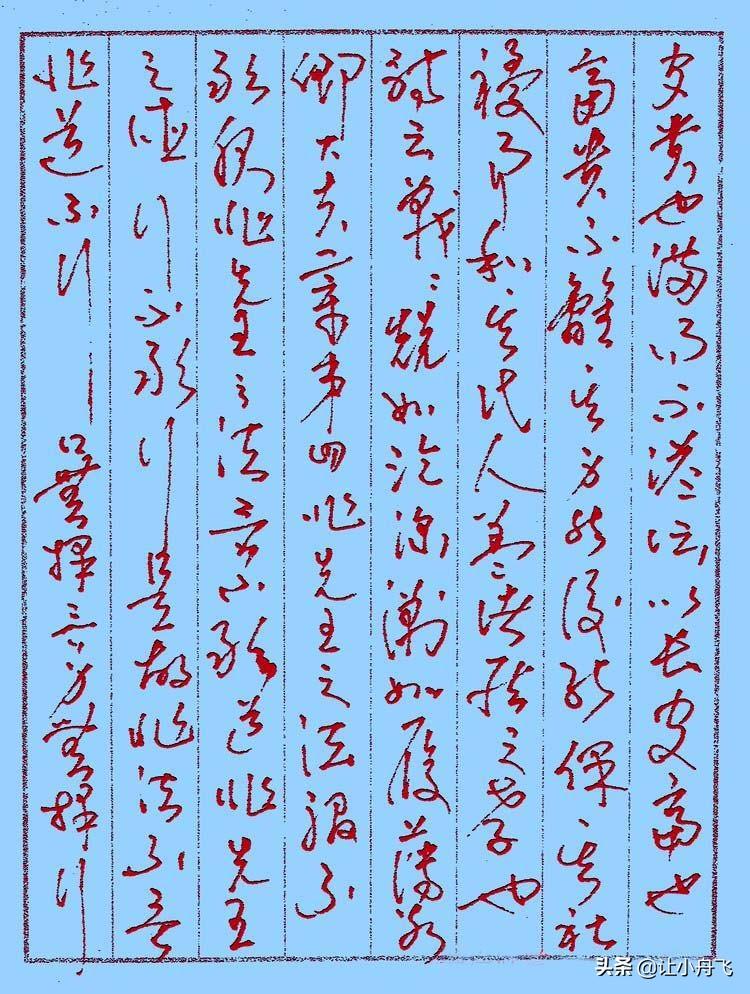 守貴也滿而不溢所以長守富也
富貴不離其身然後能保其社
稷而和其民人蓋諸侯之孝也
詩云戰〻兢〻如臨深淵如履薄冰
卿大夫章第四非先王之法服不
敢服非先王之法言不敢道非先王
之德行不敢行是故非法不言
非道不行口無擇言身無擇行
头条 @让小丹飞